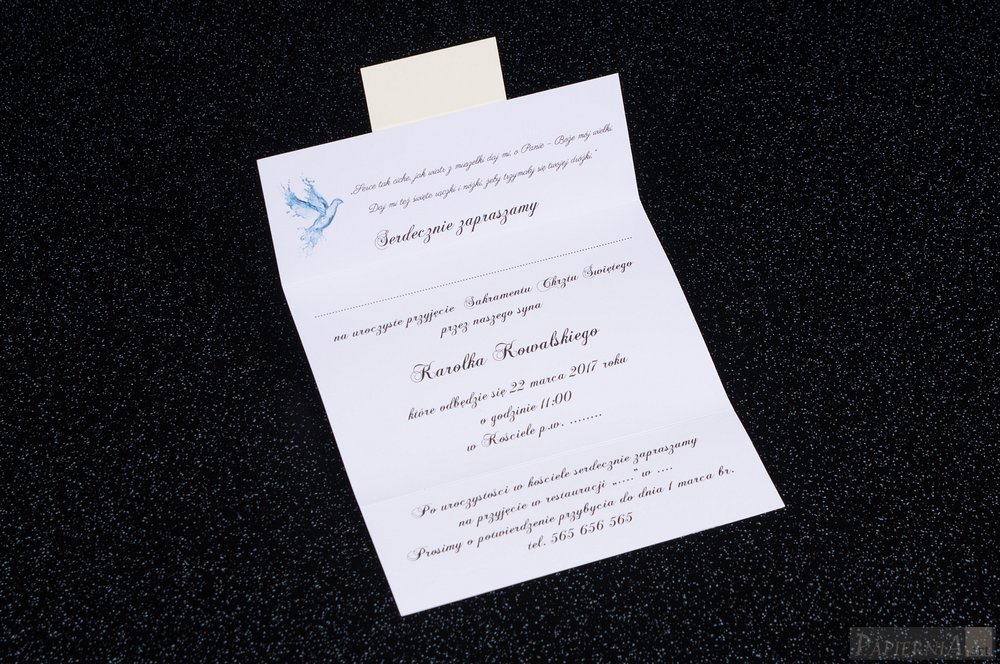 „Serce tak ciche, jak wiatr z muszelki daj mi, o Panie – Boże mój wielki.
Daj mi też święte rączki i nóżki, żeby trzymały się twojej dróżki."
Serdecznie zapraszamy
................................................................................
na uroczyste przyjęcie Sakramentu Chrztu Świętego
przez naszego syna
Karolka Kowalskiego
które odbędzie się 22 marca 2017 roku
o godzinie 11:00
w Kościele p.w. ........
Po uroczystości w kościele serdecznie zapraszamy
na przyjęcie w restauracji „...." w ....
Prosimy o potwierdzenie przybycia do dnia 1 marca br.
tel. 565 656 565
PAPIERNIA